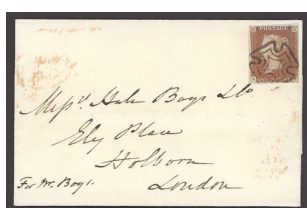 POSTAGE
Messrs Hale Boys & Co
Ely Place
Holborn
For Mr. Boys.
London